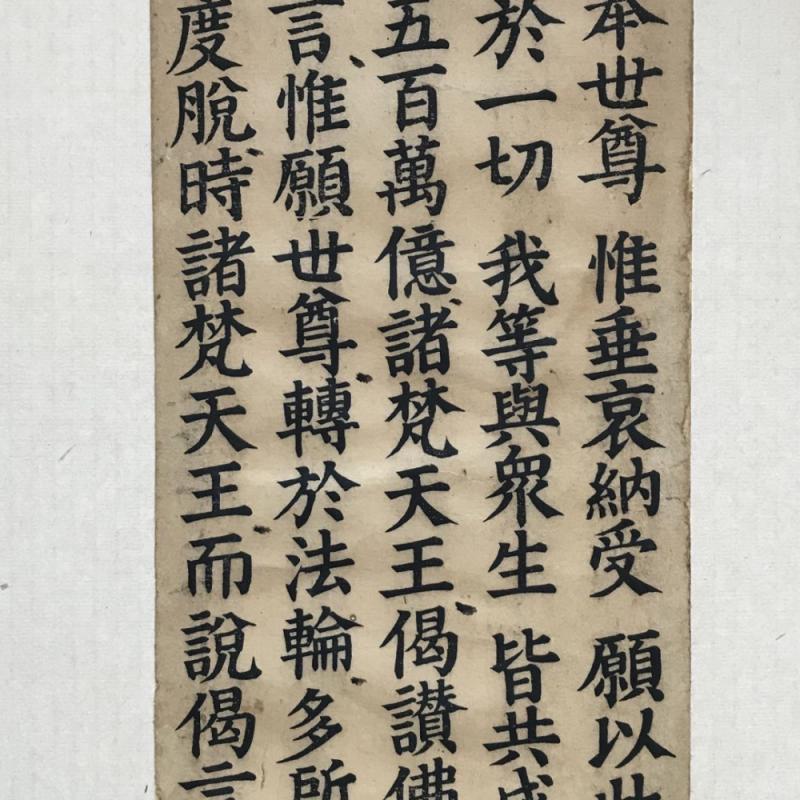 本世尊 惟垂哀納受 願以此
於一切 我等與衆生 皆共成
五百萬億諸梵天王偈讃佛
言惟願世尊轉於法輪多所
度脫時諸梵天王而說偈言